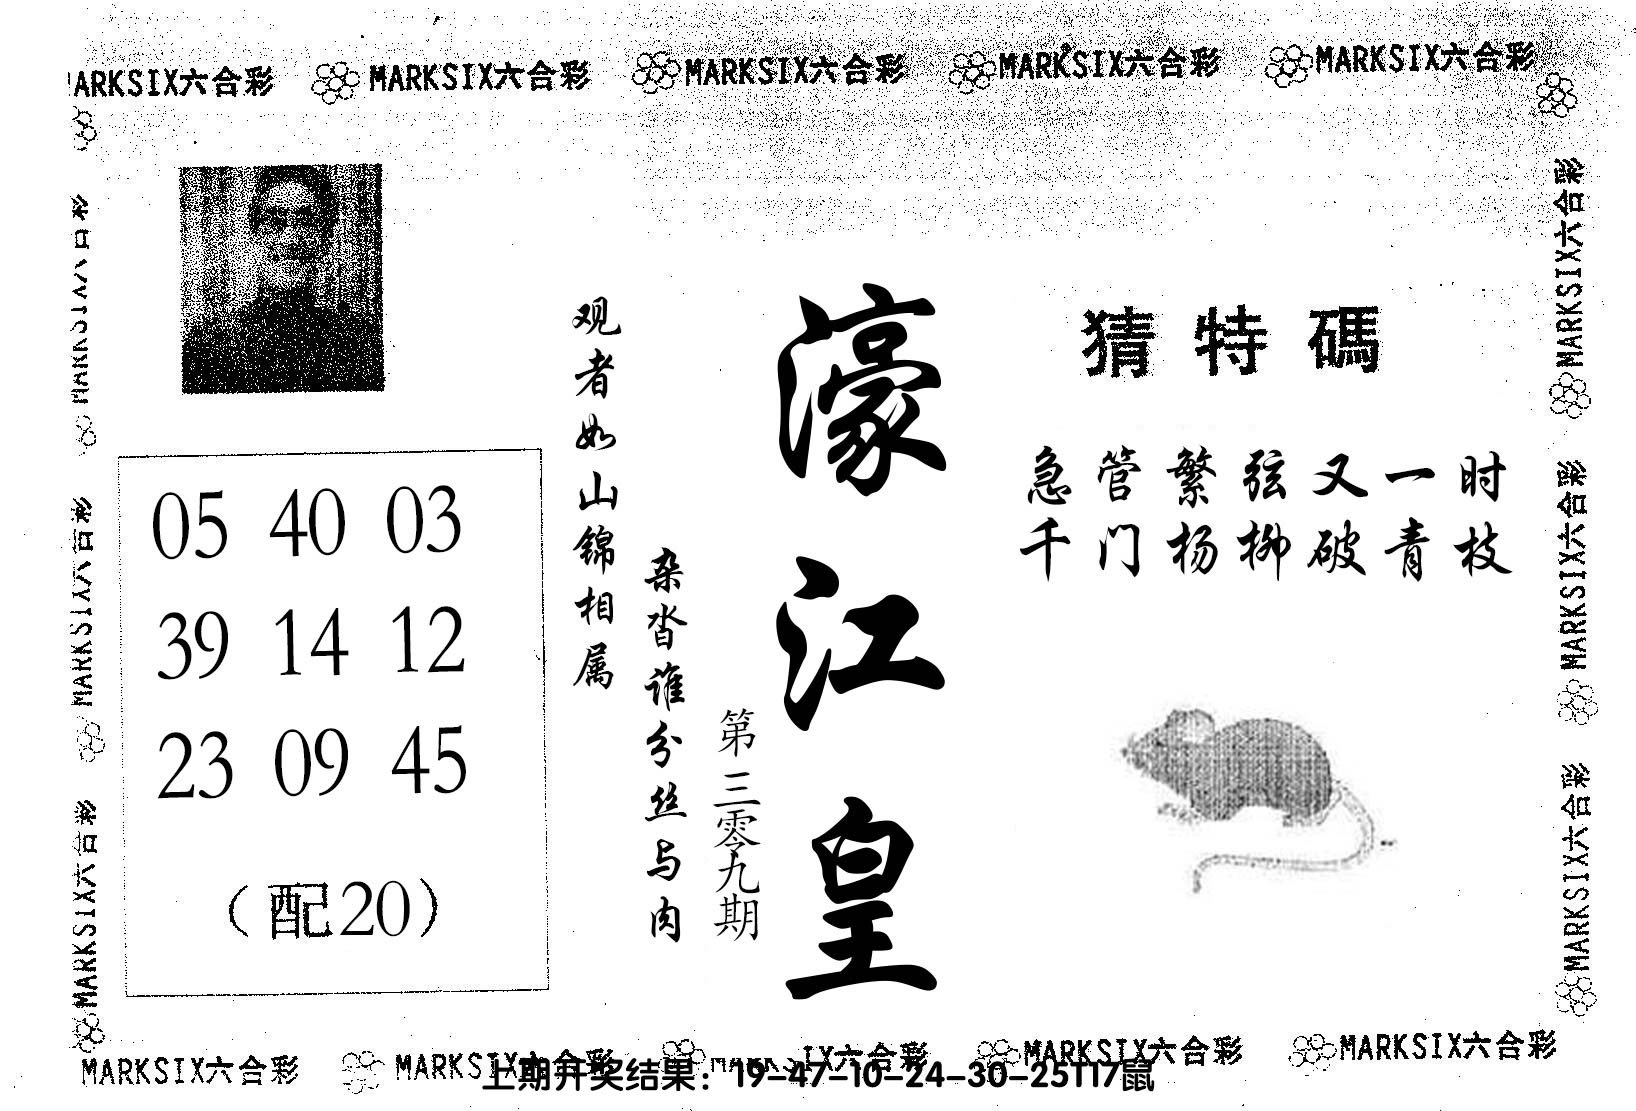 MARKSIX六合彩 MARKSIX六合彩 MARKSIX六合彩 MARKSIX六合彩 MARKSIX六合彩
猜特碼
急管繁弦又一时
千门杨柳破青枝
濠江皇
第三零九期
观者如山锦相属
杂沓谁分丝与肉
05 40 03
39 14 12
23 09 45
（配20）
MARKSIX六合彩
MARKSIX六合彩
MARKSIX六合彩
MARKSIX六合彩
MARKSIX六合彩
MARKSIX六合彩
MARKSIX六合彩 MARKSIX六合彩 MARKSIX六合彩 MARKSIX六合彩
上期开奖结果：19-47-10-24-30-25T17鼠